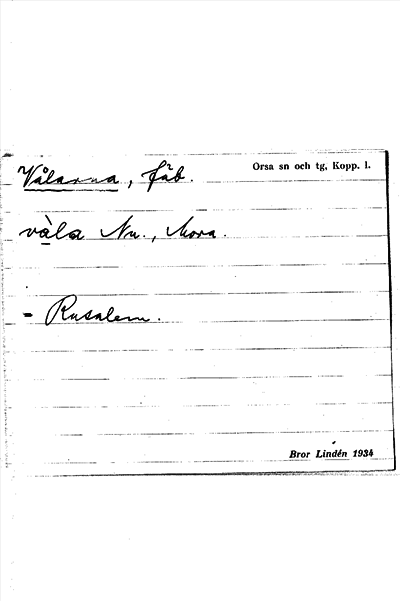 Vålarna, fäb.
Orsa sn och tg, Kopp. l.
våla Nu., Mora.
- Rusalem.
Bror Lindén 1934